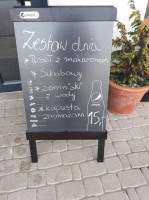 Zestaw dnia
Rosół z makaronem
Schabowy
ziemniaki
z wody
kapusta
zasmażana
15,-